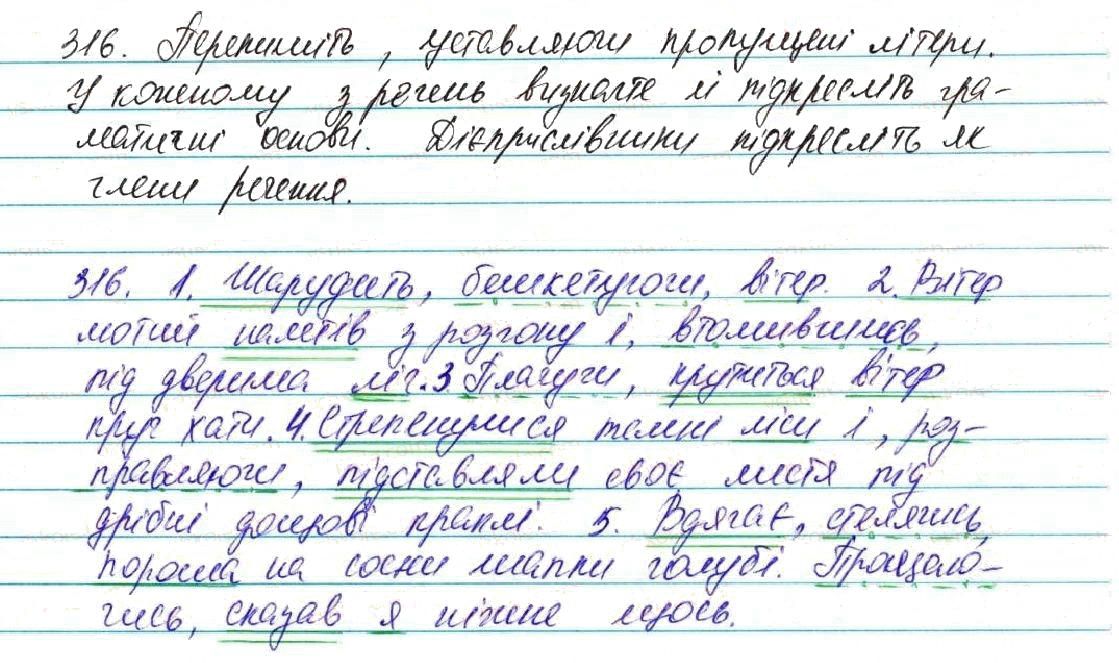 316. Перепишіть, уставляючи пропущені літери.
У кожному з речень визначте й підкресліть гра-
матичні основи. Дієприслівники підкресліть як
члени речення.
316. 1. Шарудить, бешкетуючи, вітер. 2. Вітер
мотий налетів з розгону і, втомившись,
під дверима ліг. 3 Плачучи, крутиться вітер
круг хати. 4. Стрепенулися темні ліси і, роз-
правляючи, підставляли своє листя під
дрібні дощові краплі. 5. Вдягає, стелячись,
пороша на сосни шапки голубі. Прощаю-
чись, сказав я ніжне щось.